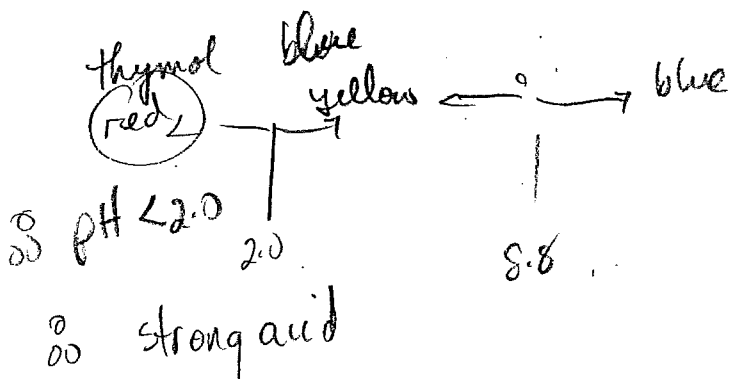 thymol blue
red yellow blue
∴ pH < 2.0 2.0 8.8
∴ strong acid